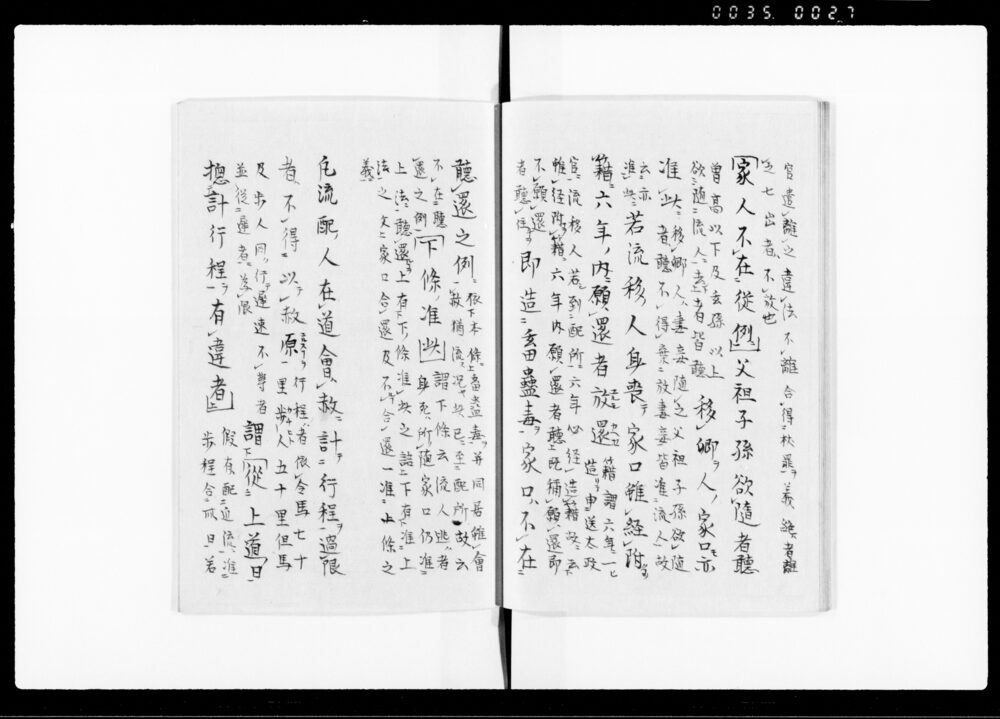 0035 0027
官遣離之違法不離合得杖罪義絶者離
之七出者不放也
家人不在従例父祖子孫欲随者聴
曽高以下及玄孫以上
欲随流人去者皆聴
移郷人家口亦
准此
移郷人妻妾随之父祖子孫欲随
者聴不得棄放妻妾皆准流人故
云亦
准此
若流移人身喪家口雖経附
籍六年内願還者放還
籍謂六年一
造申送太政
官流移人若到配所六年必経造籍故云
雖経附籍六年内願還者聴既称願還即
不願還
者聴住
即造畜蠱毒家口不在
聴還之例
依下本条上畜蠱毒并同居雖会
赦猶流況此已至配所故云
不在聴
還之例
下条准此
謂下条云流人逃者
身死所随家口仍准
上法聴還上有下条准此之語下有准上
法之文家口合還及不合還一准上条之
義
凡流配人在道会赦計行程過限
者不得以赦原
行程者依令馬七十
里歩人五十里但馬
及歩人同行遅速不等者
並従遅者為限
謂従上道日
総計行程有違者
假有配近流准
歩程合卌日若